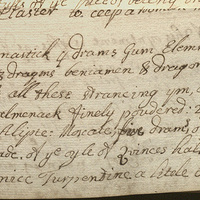 Plaister to keep a
mastick ij drams Gum Elem
dragms beniamen & dragon
all these strancing ym,
almenack finely poudered:
Alipte: Moscate, five drams, o
ade. of ye oyle of Quinces hal
nice Turpentine a litle o